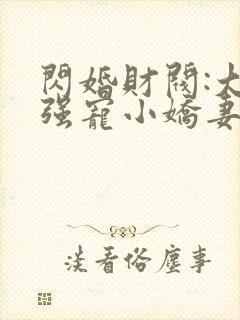 閃婚財閥:大
强寵小嬌妻
淡看俗塵事